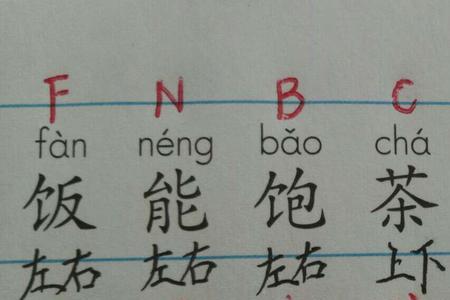 F N B C
fàn néng bǎo chá
饭 能 饱 茶
左右 左右 左右 上下